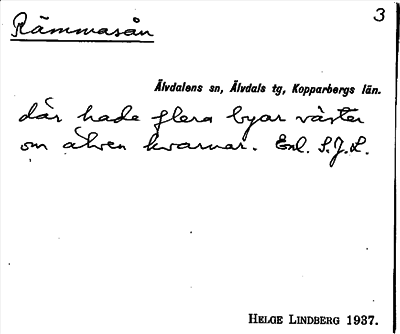 Rämmasån
3
Älvdalens sn, Älvdals tg, Kopparbergs län.
där hade flera byar väster
om älven kvarnar. Enl. S.J.L.
HELGE LINDBERG 1937.